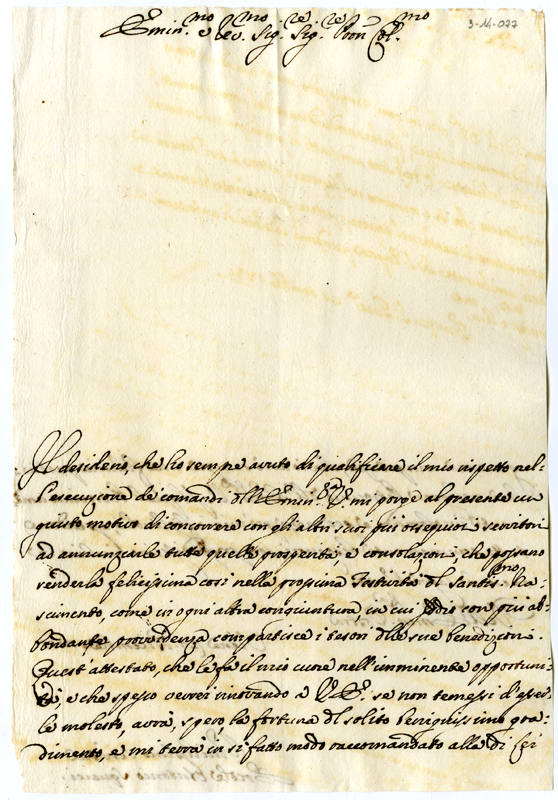 3-14-077
Emin.mo e Rev.mo Sig.re Sig.re Pron Col.mo
Il desiderio, che ho sempre avuto di qualificare il mio rispetto nel-
l'esecuzione de' comandi dll'Emin.za V. mi porge al presente un
giusto motivo di concorrere con gli altri suoi più ossequiosi servitori
ad annunziarle tutte quelle prosperità, e consolazioni, che possano
renderla felicissima così nella prossima Festività dl Santis.mo Na-
scimento, come in ogni altra congiuntura, in cui Iddio con più ab-
bondante providenza compartisce i tesori dlle sue benedizioni.
Quest'attestato, che le fa il mio cuore nell'imminente opportuni-
tà, e che spesso verrei rinovando a V.E. se non temessi d'esser-
le molesto, avrà, spero, la fortuna dl solito benignissimo gra-
dimento, e mi terrà in sì fatto modo raccomandato alla di lei